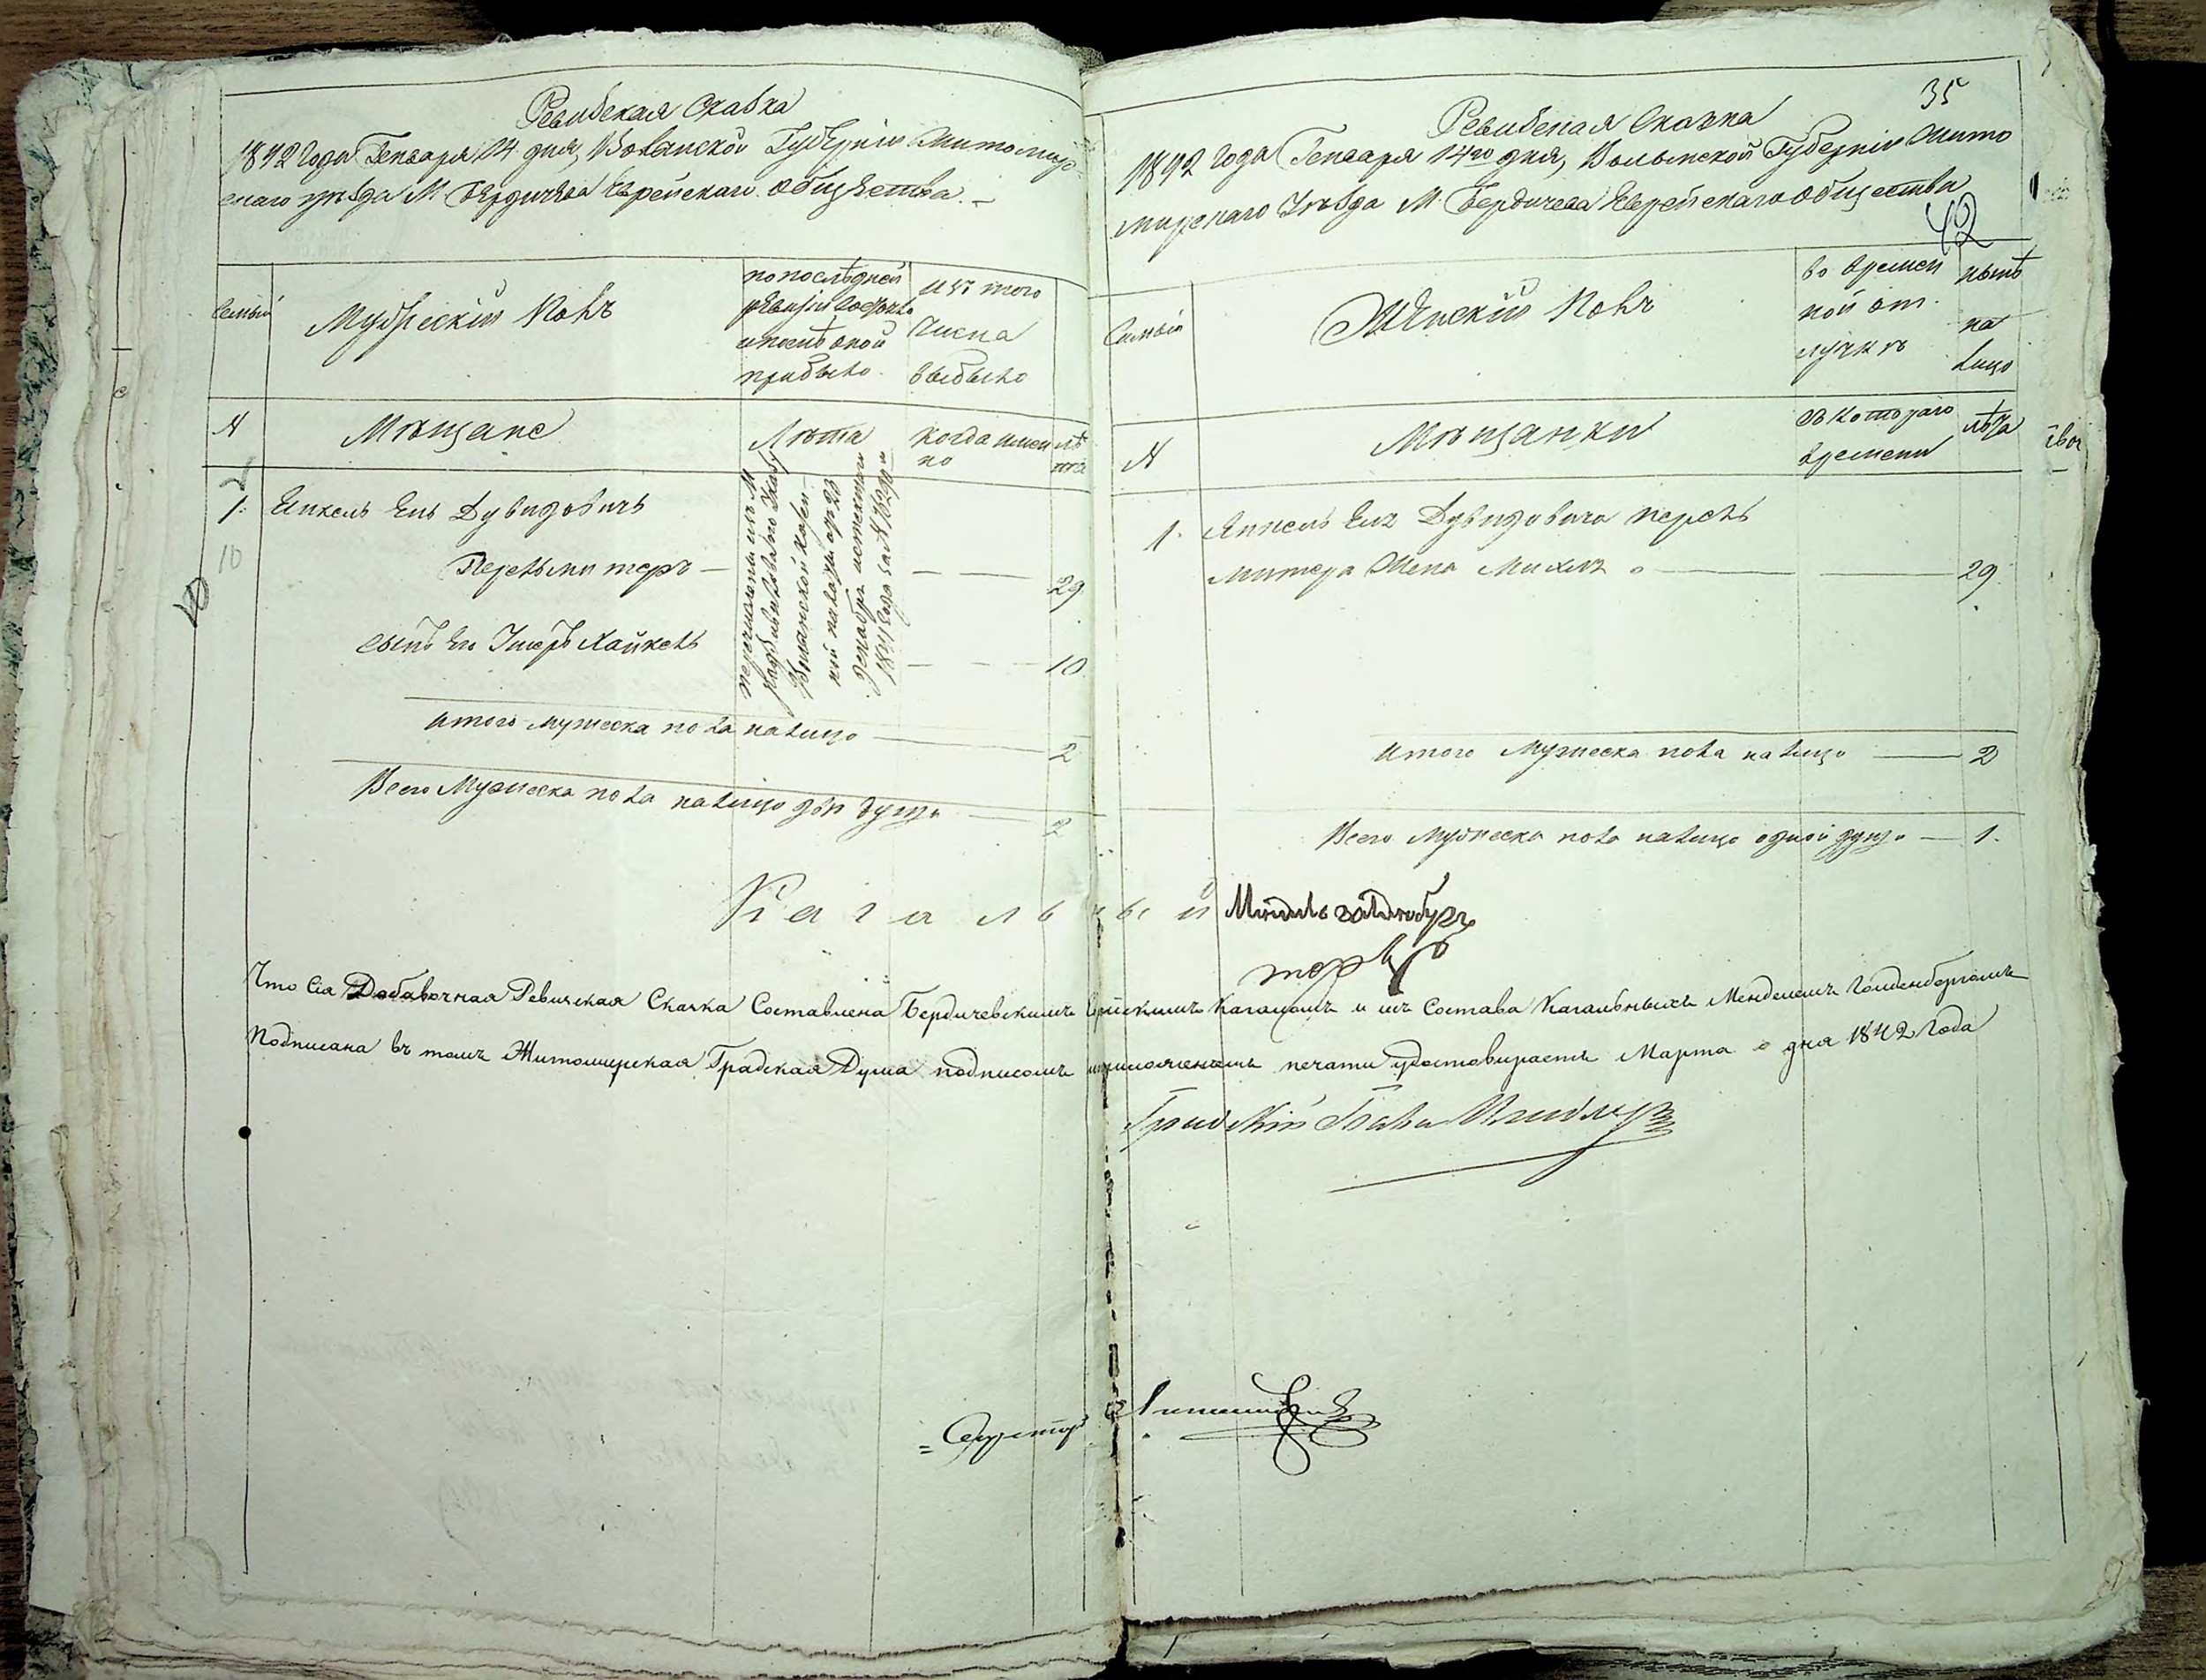 Ревизская Сказка
1842 Года Генваря 14 дня, Волынской Губернии Житомир
скаго уезда М Бердичева Еврейскаго общества. –
Семьи
Мужескій Полъ
по последней
ревизіи состояло
и после оной
прибыло
изъ того
числа
выбыло
№
Мещане
Лета
когда имен
но
ле
та
1.
10
Янкель Ель Дувидовичъ
Перельмитеръ —
29
сынъ Его Хайкель
10
перечислены изъ М
Волынской Казен
ной палаты от 23
декабря истекшаго
1841 года за №
итого мужеска пола налицо
2
Всего Мужеска пола налицо две души
2
35
Ревизская Сказка
1842 года Генваря 14го дня, Волынской Губерніи Жито
мирскаго Уезда М. Бердичева Еврейскаго общества
42
Семьи
Женскій Полъ
во времен
ной от
лучке
ныне
на
лицо
№
Мещанки
съ котораго
времени
лета
1.
Янкеля Еля Дувидовича Перель
митера Жена
29
итого Мужеска пола налицо
2
Всего Мужеска пола налицо одной души — 1.
Кагальный
Что сія Добавочная Ревизская Сказка Составлена Бердичевскимъ Еврейскимъ Кагаломъ и изъ Состава Кагальныхъ Менделемъ Голденбергомъ
Подписана въ томъ Житомирская Градская Дума подписомъ и приложеніемъ печати удостовераетъ Марта дня 1842 Года
Градскій Глава
Секретарь